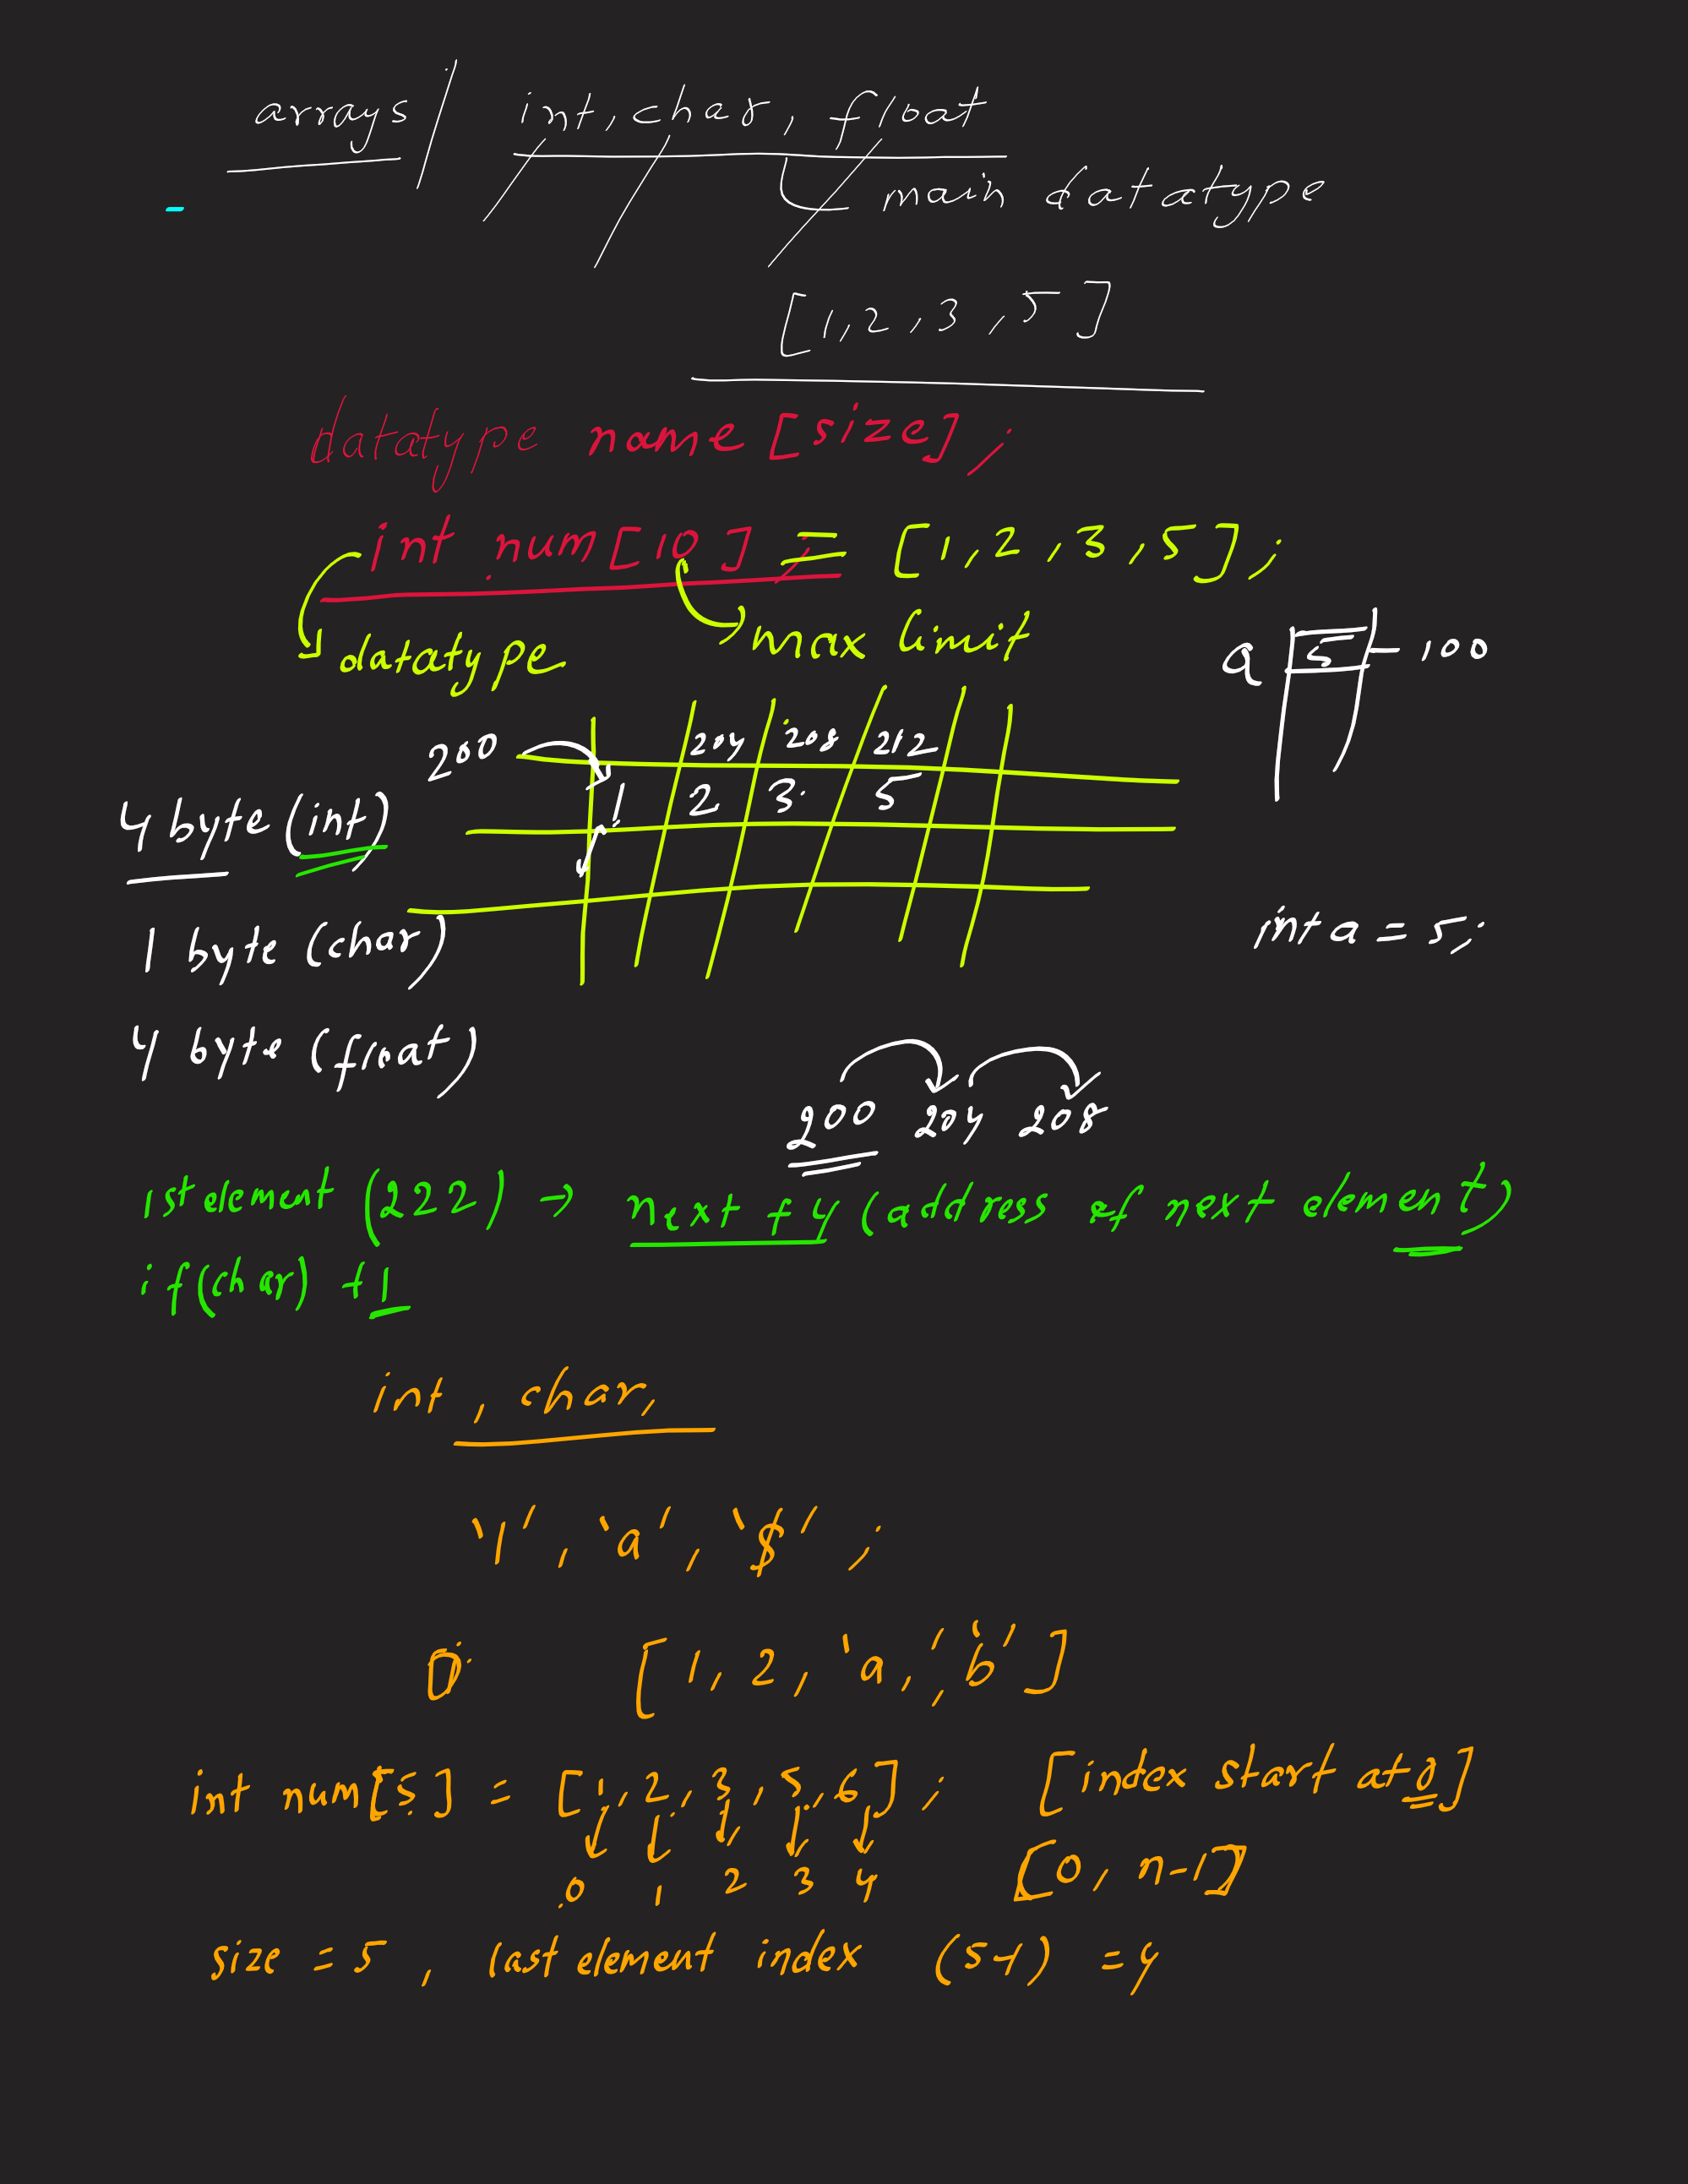 arrays / int, char, float
main datatype
[1, 2, 3, 5]
datatype name [size];
int num[10]; = [1, 2, 3, 5];
datatype max limit
a 5 - 100
200 204 208 212
1 2 3 5
4 byte (int)
1 byte (char)
int a = 5;
4 byte (float)
200 204 208
1st element (222) → next +4 (address of next element)
if(char) +1
int, char,
'1', 'a', '$' ;
[1, 2, 'a', 'b']
int num[5] = [1, 2, 3, 5, 6]; [index start at 0]
0 1 2 3 4 [0, n-1]
size = 5, last element index (5-1) = 4